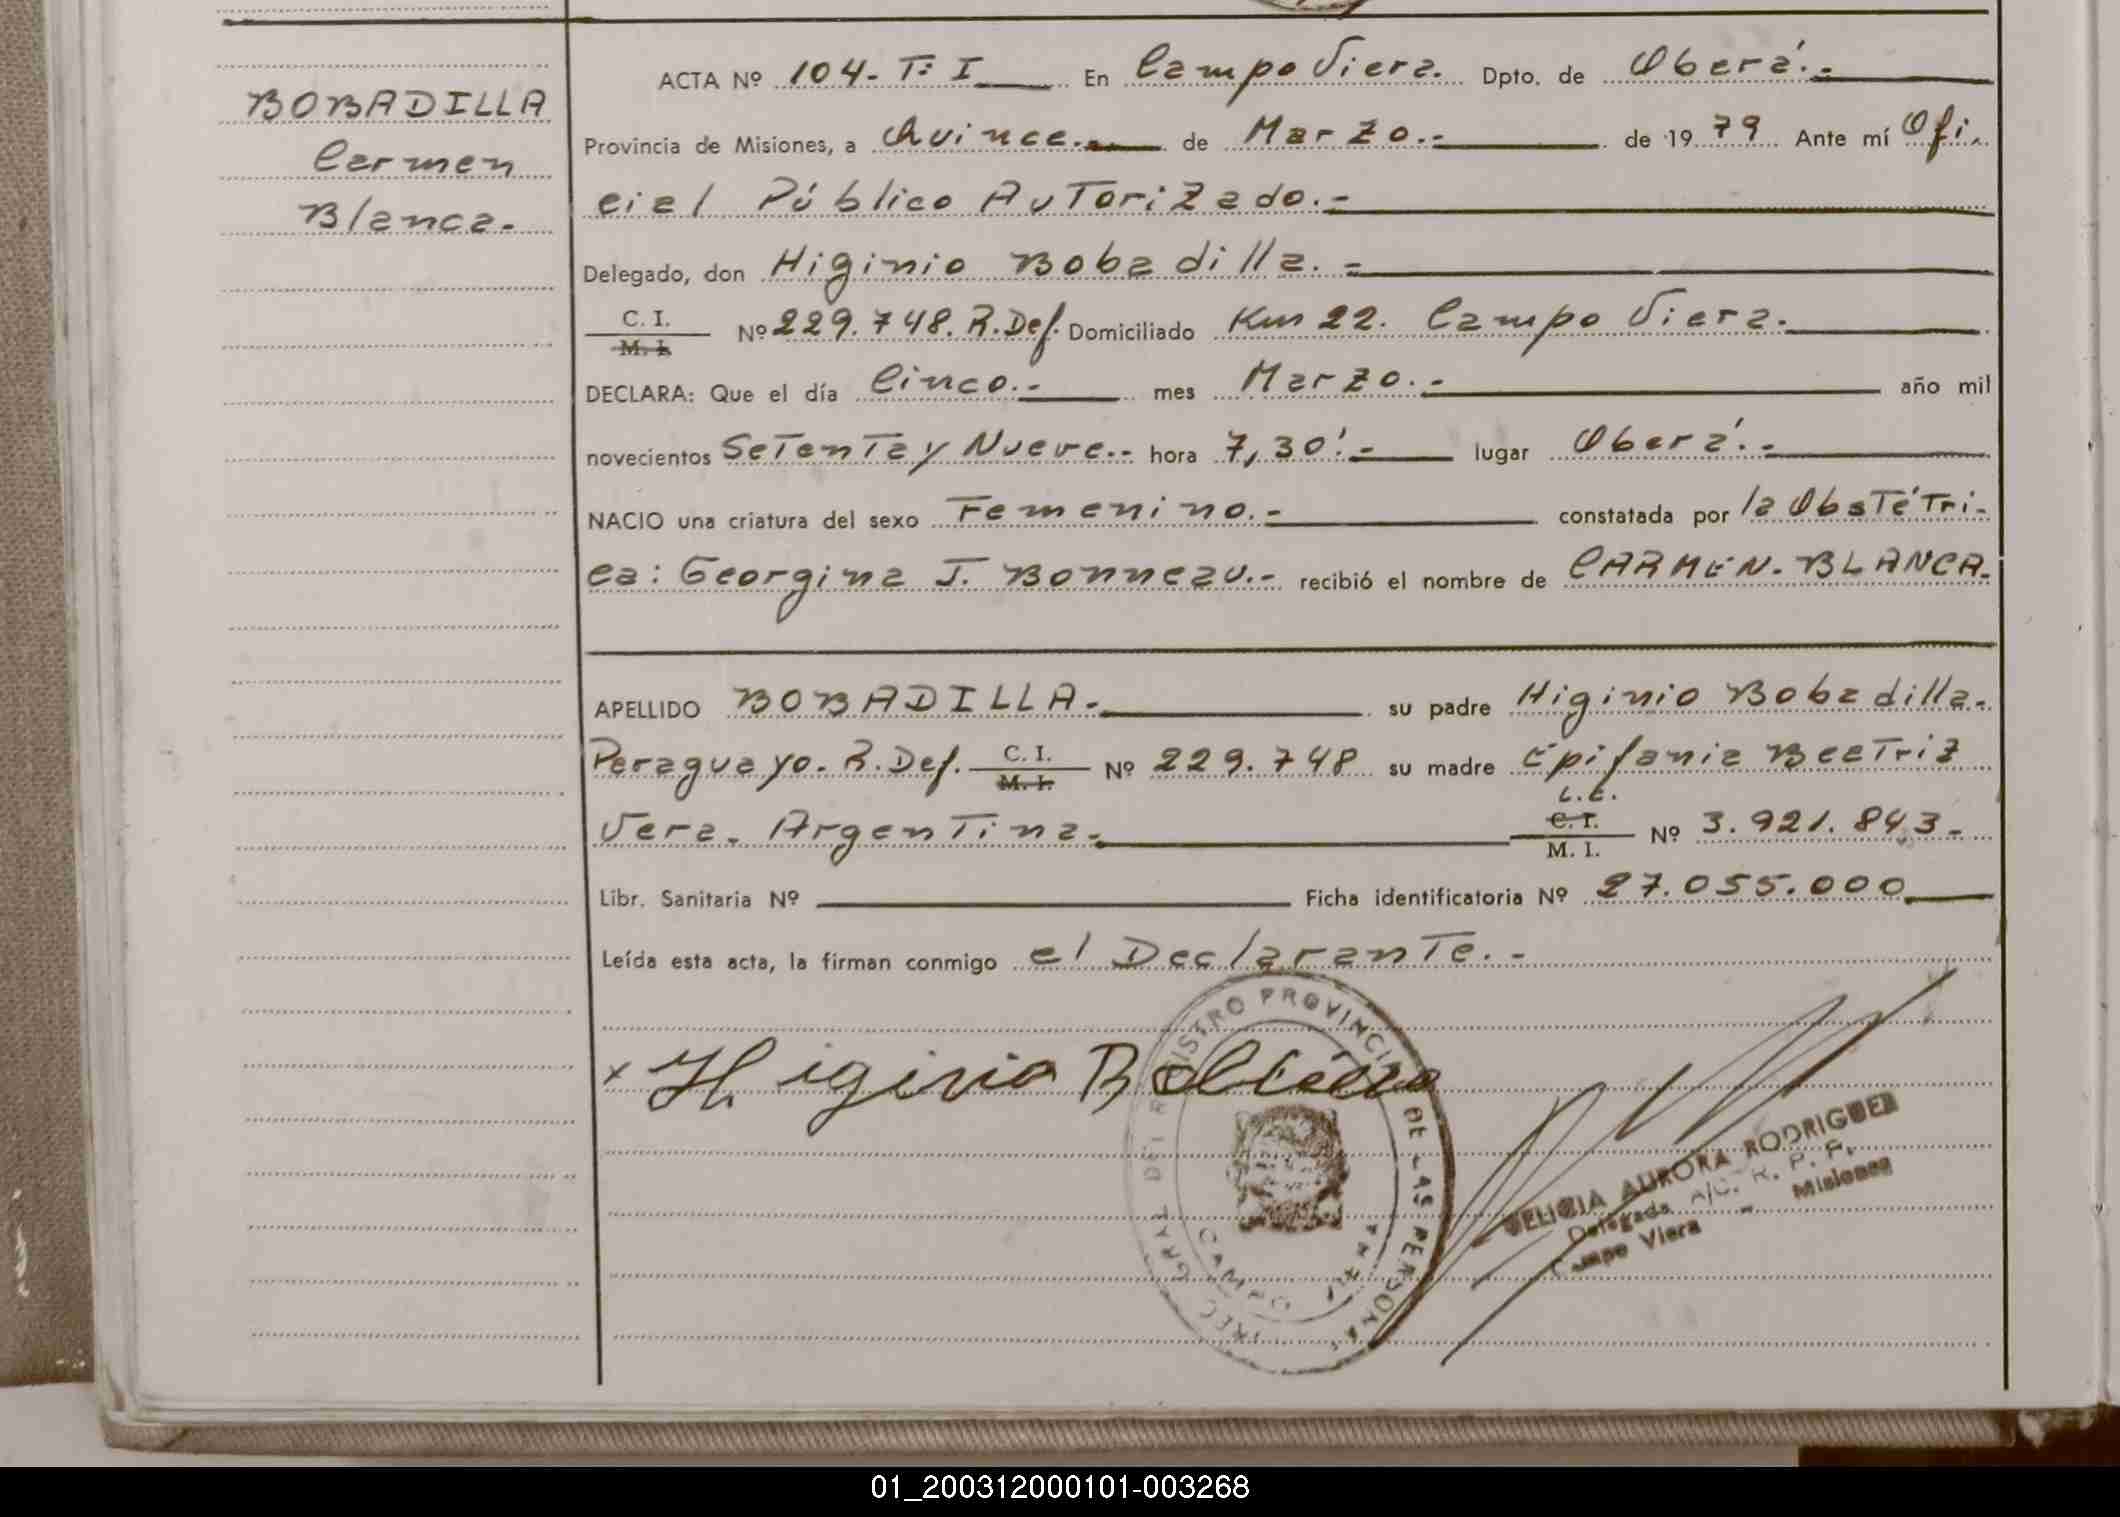 BOBADILLA
Carmen
Blanca.
ACTA Nº 104- Tº I En Campo Viera. Dpto. de Oberá.-
Provincia de Misiones, a Quince. de Marzo.- de 1979 Ante mí Ofi-
cial Público Autorizado.-
Delegado, don Higinio Bobadilla.-
C. I.
M. I. Nº 229.748. R.Def. Domiciliado Km 22. Campo Viera.
DECLARA: Que el día Cinco.- mes Marzo.- año mil
novecientos Setenta y Nueve.- hora 7,30'.- lugar Oberá.-
NACIO una criatura del sexo Femenino.- constatada por la Obstétri-
ca: Georgina J. Bonneau.- recibió el nombre de CARMEN. BLANCA.
APELLIDO BOBADILLA.- su padre Higinio Bobadilla.
Paraguayo. R.Def. C. I.
M. I. Nº 229.748 su madre Epifania Beatriz
Vera. Argentina. L.C.
C. I.
M. I. Nº 3.921.843.-
Libr. Sanitaria Nº Ficha identificatoria Nº 27.055.000
Leída esta acta, la firman conmigo el Declarante.-
x Higinio
REGISTRO PROVINCIAL DE LAS PERSONAS
CAMPO VIERA
AURORA RODRIGUEZ
Delegada A/C. R. P. P.
Campo Viera - Misiones
01_200312000101-003268